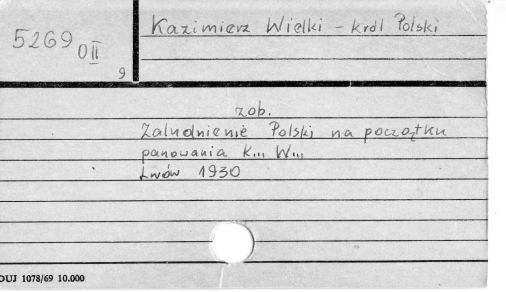 Kazimierz Wielki - król Polski
5269 O II
9
zob.
Zaludnienie Polski na początku
panowania K... W...
Lwów 1930
DUJ 1078/69 10.000